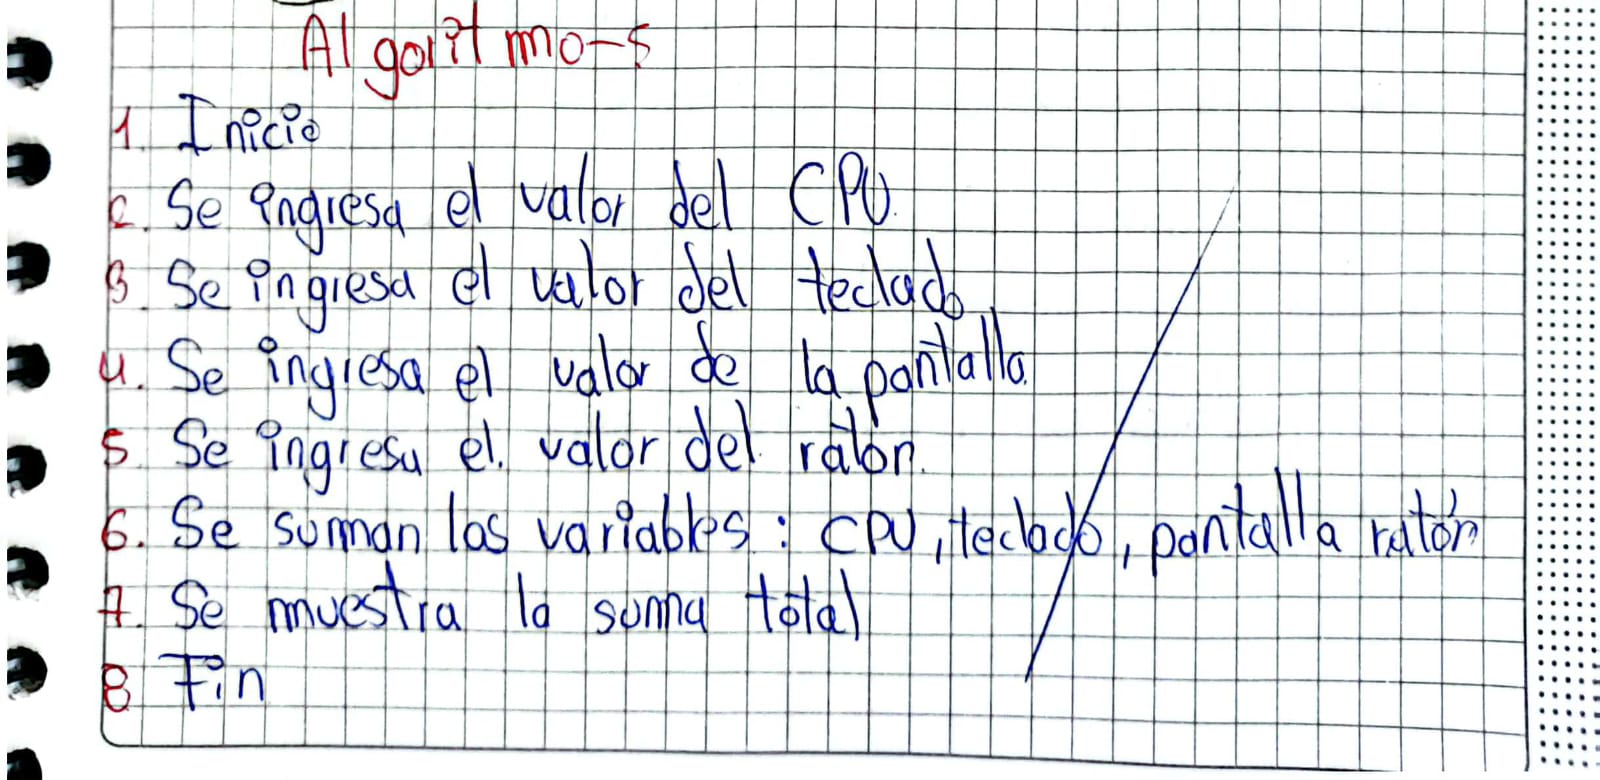 Algoritmo-s
1. Inicio
2. Se ingresa el valor del CPU.
3. Se ingresa el valor del teclado
4. Se ingresa el valor de la pantalla.
5. Se ingresa el valor del ratón.
6. Se suman las variables: CPU, teclado, pantalla ratón
7. Se muestra la suma total
8 Fin